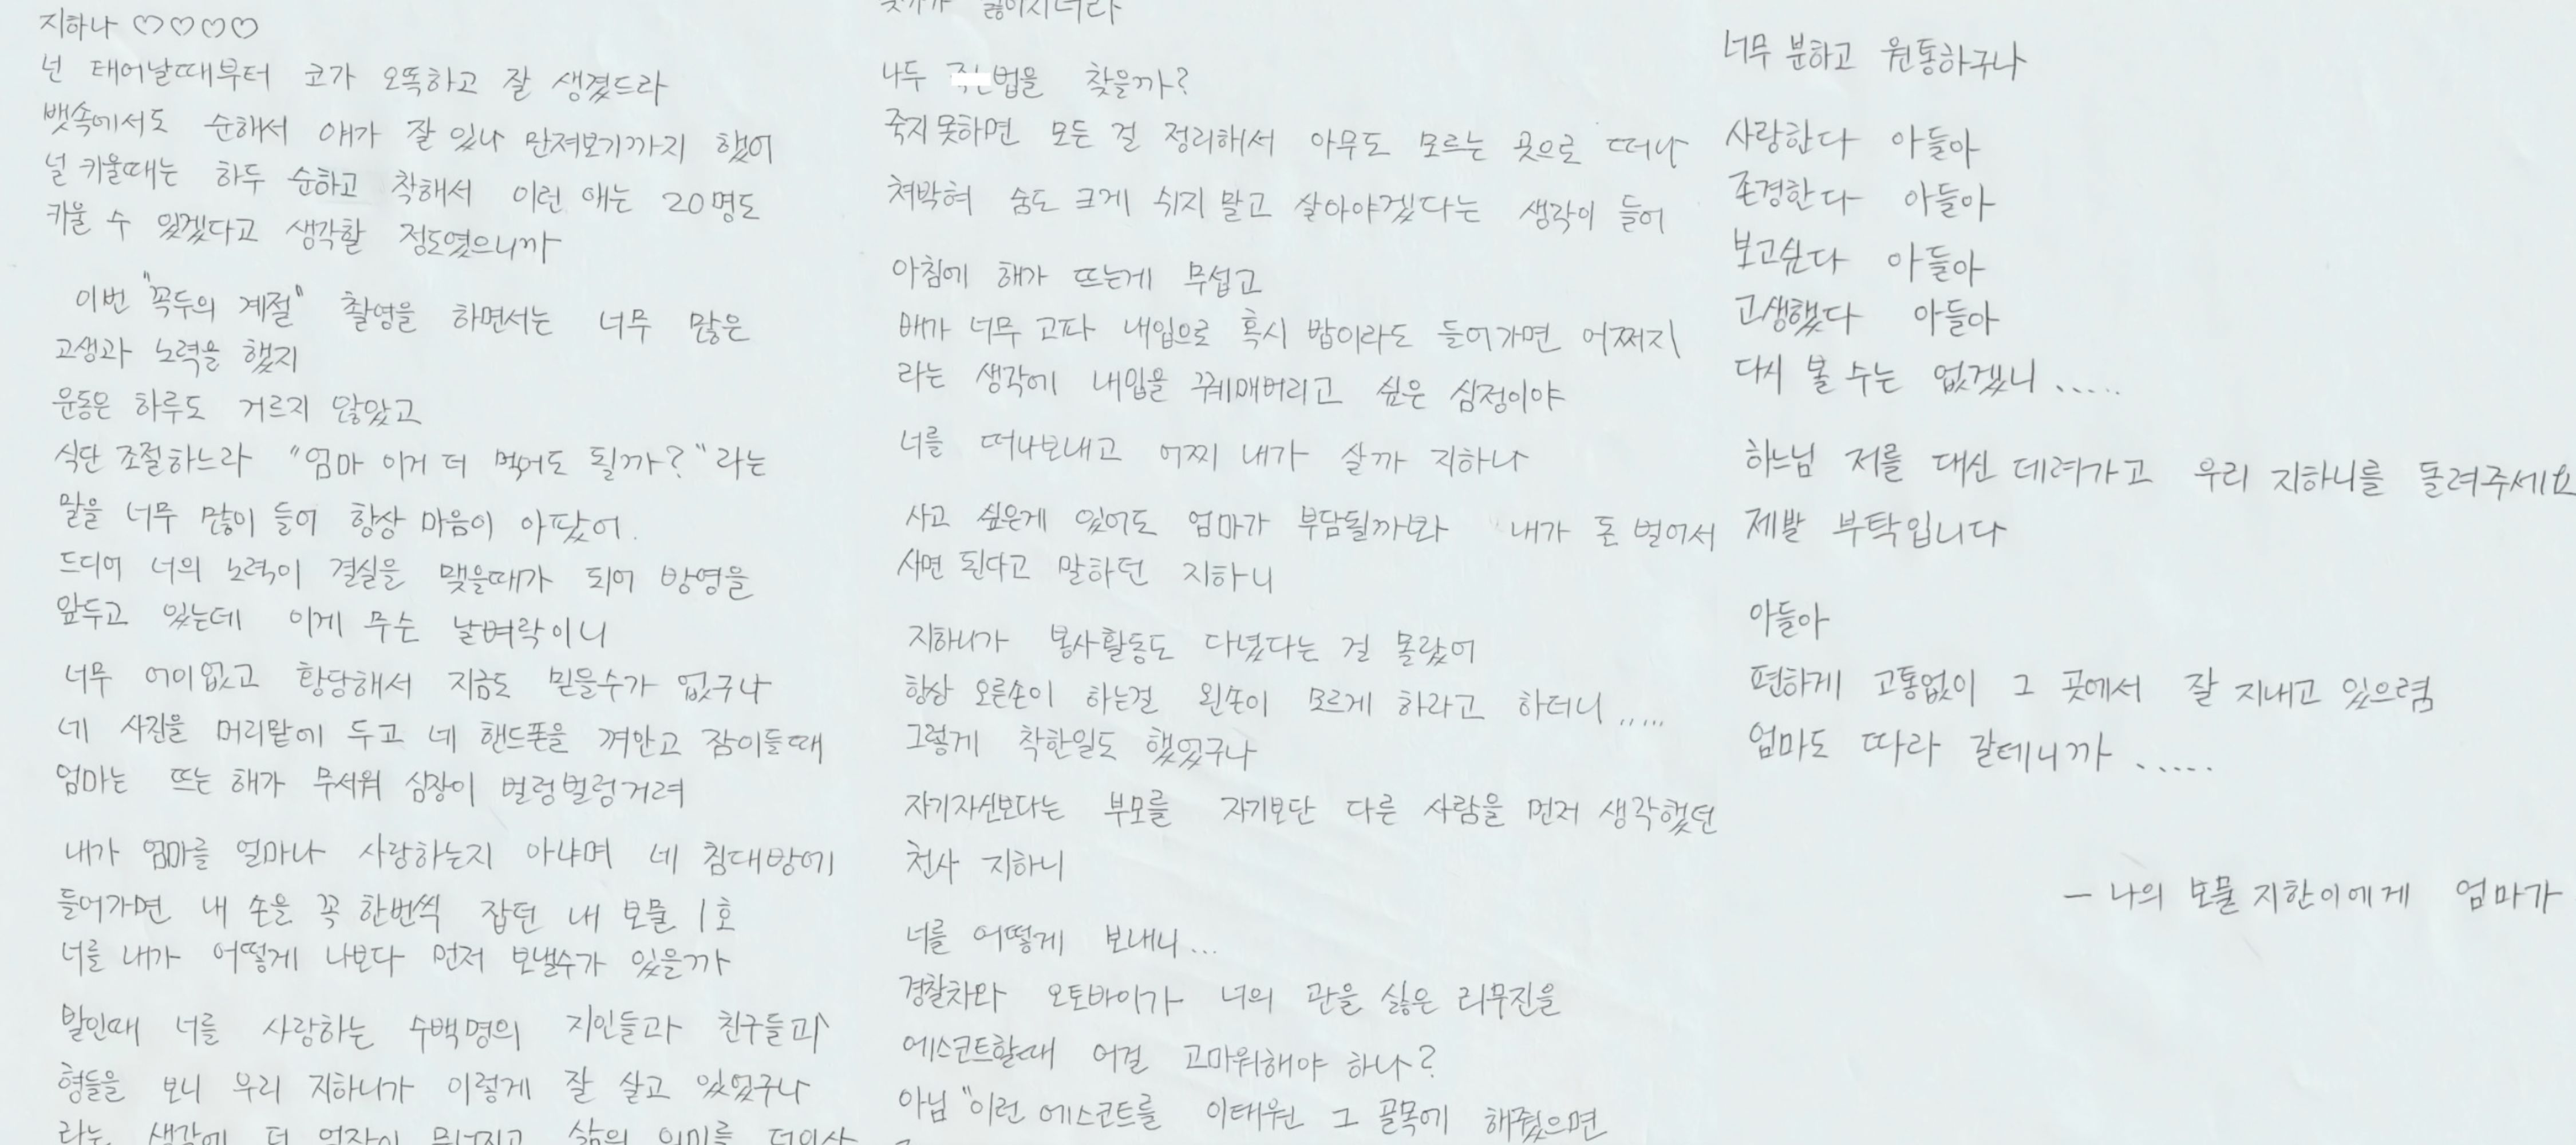 지하나 ♡♡♡♡
넌 태어날때부터 코가 오똑하고 잘 생겼드라
뱃속에서도 순해서 얘가 잘 있나 만져보기까지 했어
널 키울때는 하두 순하고 착해서 이런 애는 20명도
키울 수 있겠다고 생각할 정도였으니까
이번 "꼭두의 계절" 촬영을 하면서는 너무 많은
고생과 노력을 했지
운동은 하루도 거르지 않았고
식단 조절하느라 "엄마 이거 더 먹어도 될까?"라는
말을 너무 많이 들어 항상 마음이 아팠어.
드디어 너의 노력이 결실을 맺을때가 되어 방영을
앞두고 있는데 이게 무슨 날벼락이니
너무 어이없고 황당해서 지금도 믿을수가 없구나
네 사진을 머리맡에 두고 네 핸드폰을 껴안고 잠이들때
엄마는 뜨는 해가 무서워 심장이 벌렁벌렁거려
내가 엄마를 얼마나 사랑하는지 아냐며 네 침대방에
들어가면 내 손을 꼭 한번씩 잡던 내 보물 1호
너를 내가 어떻게 나보다 먼저 보낼수가 있을까
발인때 너를 사랑하는 수백명의 지인들과 친구들과
형들을 보니 우리 지하니가 이렇게 잘 살고 있었구나
라는 생각에 더 억장이 무너지고 삶의 의미를 더이상
나두 법을 찾을까?
죽지못하면 모든 걸 정리해서 아무도 모르는 곳으로 떠나
쳐박혀 숨도 크게 쉬지 말고 살아야겠다는 생각이 들어
아침에 해가 뜨는게 무섭고
배가 너무 고파 내입으로 혹시 밥이라도 들어가면 어쩌지
라는 생각에 내입을 꿰매버리고 싶은 심정이야
너를 떠나보내고 어찌 내가 살까 지하나
사고 싶은게 있어도 엄마가 부담될까봐 내가 돈 벌어서
사면 된다고 말하던 지하니
지하니가 봉사활동도 다녔다는 걸 몰랐어
항상 오른손이 하는걸 왼손이 모르게 하라고 하더니 .....
그렇게 착한일도 했었구나
자기자신보다는 부모를 자기보단 다른 사람을 먼저 생각했던
천사 지하니
너를 어떻게 보내니...
경찰차와 오토바이가 너의 관을 실은 리무진을
에스코트할때 이걸 고마워해야 하나?
아님 "이런 에스코트를 이태원 그 골목에 해줬으면
너무 분하고 원통하구나
사랑한다 아들아
존경한다 아들아
보고싶다 아들아
고생했다 아들아
다시 볼 수는 없겠니 .....
하느님 저를 대신 데려가고 우리 지하니를 돌려주세요
제발 부탁입니다
아들아
편하게 고통없이 그 곳에서 잘 지내고 있으렴
엄마도 따라 갈테니까 .....
— 나의 보물 지한이에게 엄마가